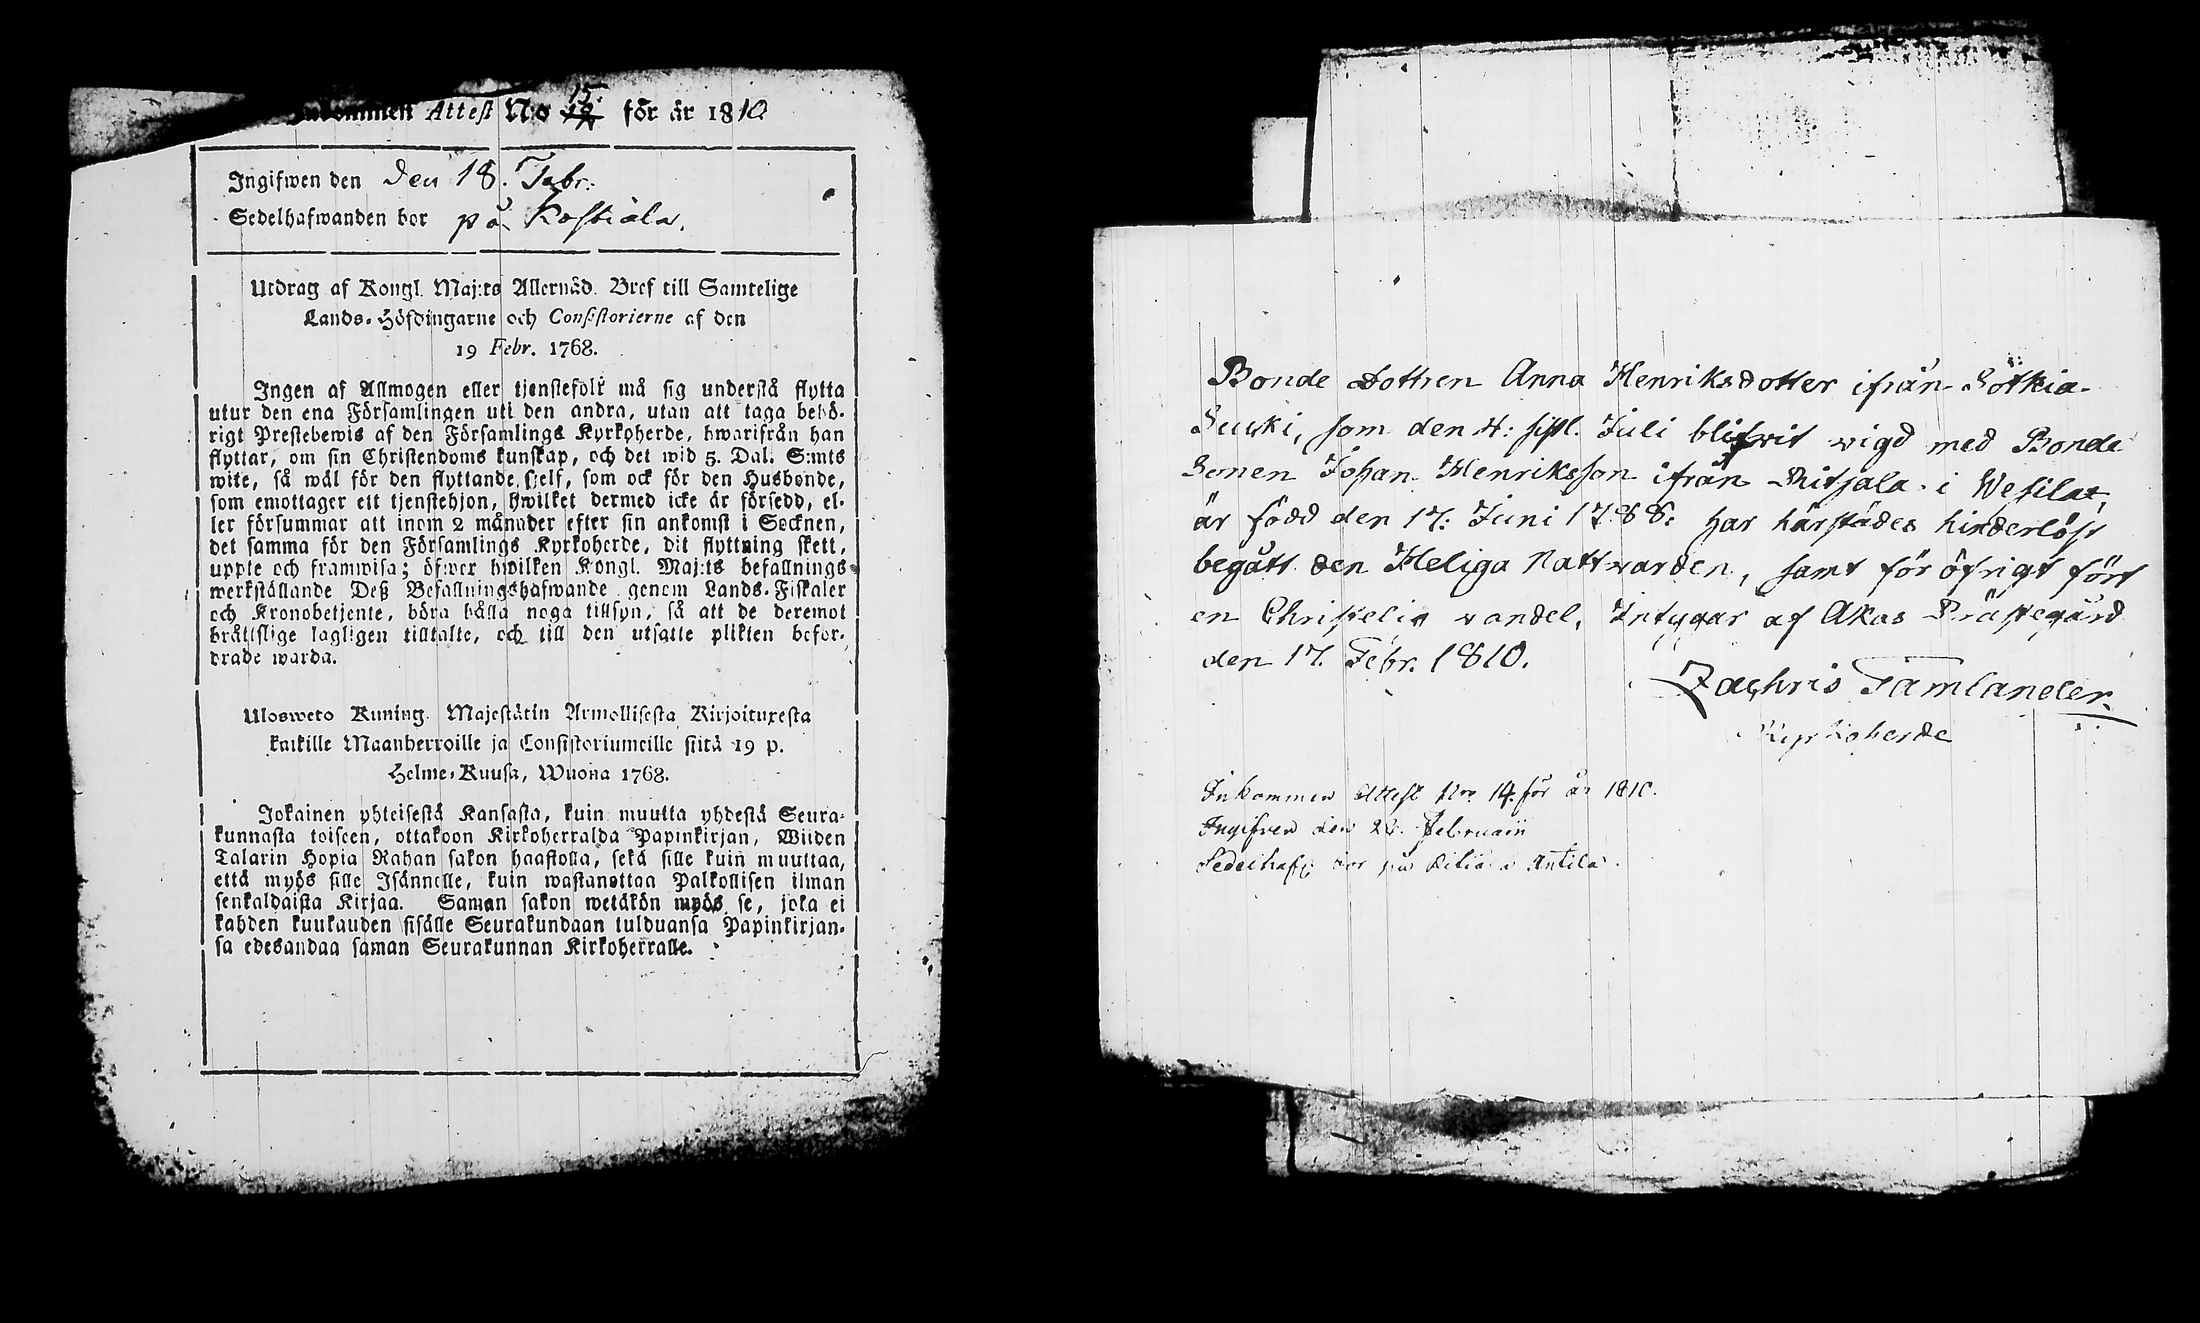 Inkommen Attest No 15. för år 1810
Ingifwen den den 18. Febr.
Sedelhafwanden bor på Kostiala.
Utdrag af Kongl. Maj:ts Allernåd. Bref till Samtelige
Lands-Höfdingarne och Consistorierne af den
19 Febr. 1768.
Ingen af Allmogen eller tjenstefolk må sig understå flytta
utur den ena Församlingen uti den andra, utan att taga behö-
rigt Prestebewis af den Församlings Kyrkoherde, hwarifrån han
flyttar, om sin Christendoms kunskap, och det wid 5. Dal. S:mts
wite, så wäl för den flyttande sjelf, som ock för den Husbonde,
som emottager ett tjenstehjon, hwilket dermed icke är försedd, el-
ler försummar att inom 2 månader efter sin ankomst i Socknen,
det samma för den Församlings Kyrkoherde, dit flyttning skett,
uppte och framwisa; öfwer hwilken Kongl. Maj:ts befallnings
werkställande Deß Befallningshafwande genom Lands-Fiskaler
och Kronobetjente, böra hålla noga tillsyn, så att de deremot
bråttslige lagligen tilltalte, och till den utsatte plikten befor-
drade warda.
Ulosweto Kuning. Majestätin Armollisesta Kirjoituxesta
kaikille Maanherroille ja Consistoriumeille siitä 19 p.
Helme-Kuusa, Wuona 1768.
Jokainen yhteisestä Kansasta, kuin muutta yhdestä Seura-
kunnasta toiseen, ottakoon Kirkoherralda Papinkirjan, Wiiden
Talarin Hopia Rahan sakon haastolla, sekä sille kuin muuttaa,
että myös sille Isännälle, kuin wastanottaa Palkollisen ilman
senkaldaista Kirjaa. Saman sakon wetäkön myös se, joka ei
kahden kuukauden sisälle Seurakundaan tulduansa Papinkirjan-
sa edesandaa saman Seurakunnan Kirkoherralle.
Bonde dottren Anna Henriksdotter ifrån Sötkia-
Suuki, som den 4: sistl. Juli blifwit wigd med Bonde
Sonen Johan Henriksson ifrån Ritjala i Wesilax,
är född den 17: Juni 1788: har härstädes hinderlöst
begått den Heliga Nattvarden, samt för öfrigt fört
en Christelig vandel, Intygar af Akas Prästegård
den 17. Febr. 1810.
Zachris Tamlander.
Kyrkoherde
Inkommen Attest Nro 14. för år 1810.
Ingifven den 28. Februarii
Sedelhafv: bor på Antila.